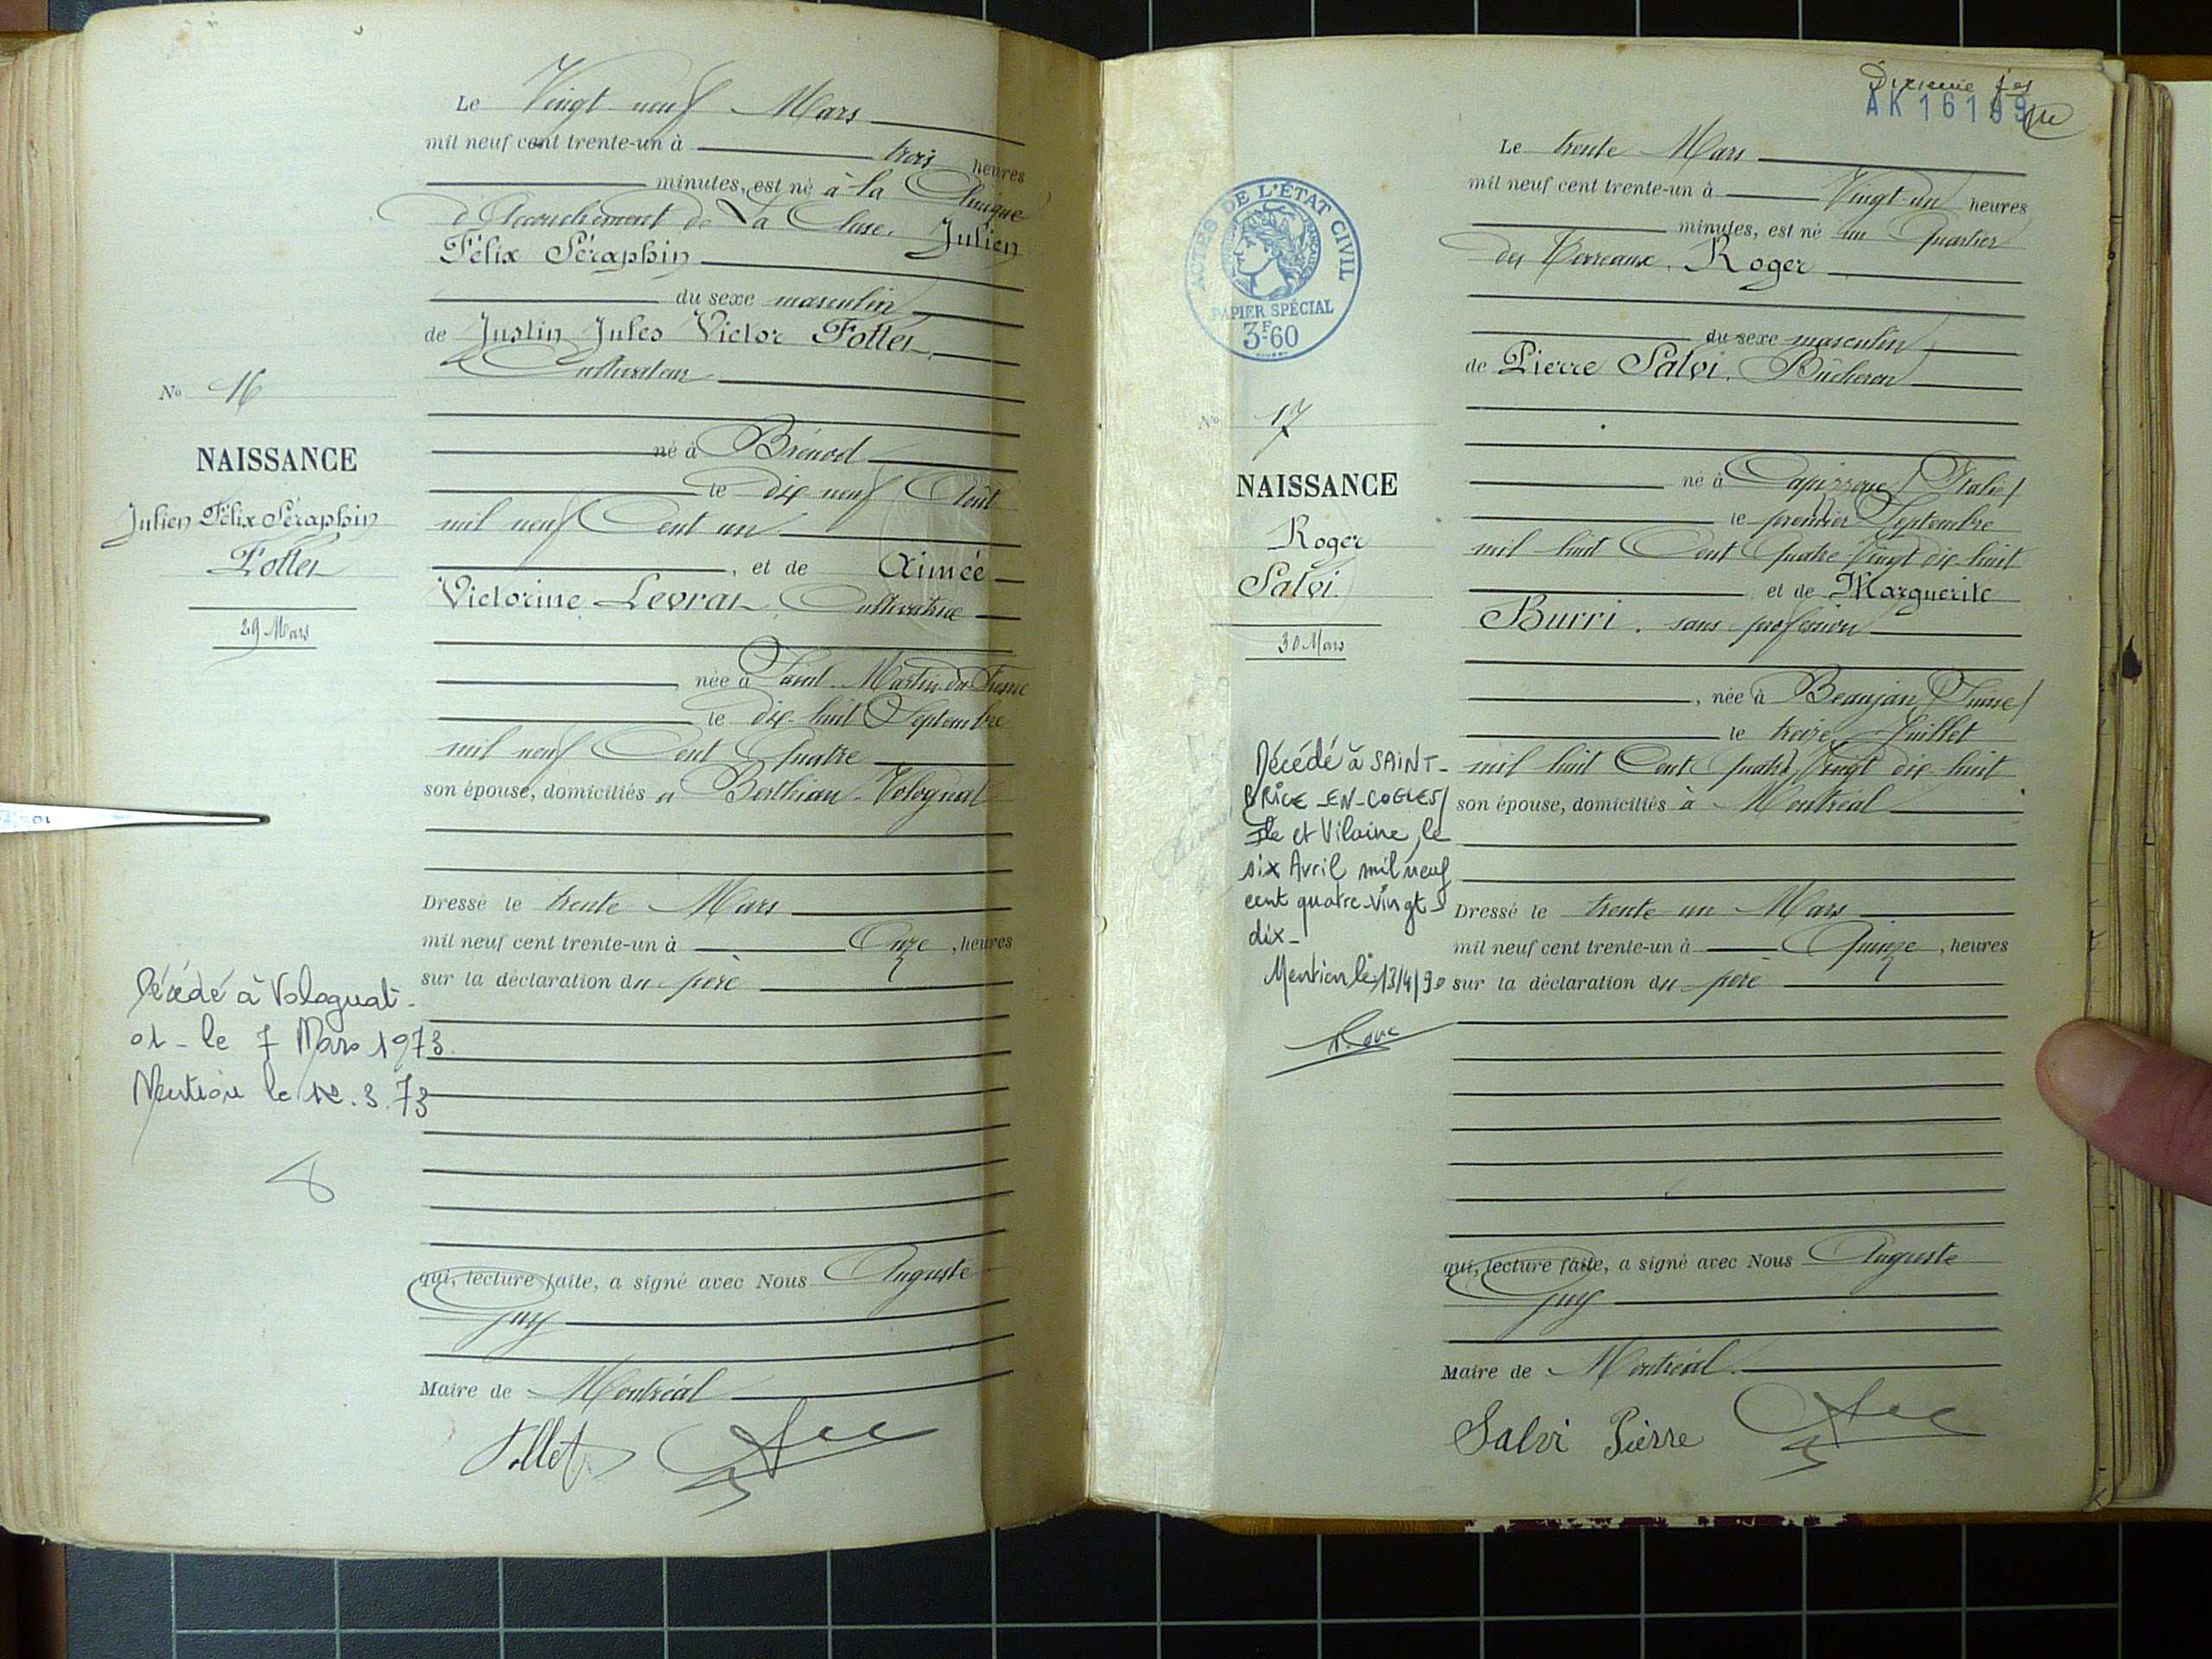 Le Vingt neuf Mars
mil neuf cent trente-un à trois heures
minutes, est né à la Clinique
d'Accouchement de La Cluse. Julien
Félix Séraphin
du sexe masculin
de Justin Jules Victor Follet
Cultivateur
né à Brénod
le dix neuf Août
mil neuf Cent un
, et de Aimée
Victorine Levrat, Cultivatrice
née à Saint-Martin-du-Fresne
le dix-huit Septembre
mil neuf Cent Quatre
son épouse, domiciliés à Volognat
Dressé le trente Mars
mil neuf cent trente-un à Onze, heures
sur la déclaration du père
qui, lecture faite, a signé avec Nous Auguste
Guy
Maire de Montréal
Follet
No 16
NAISSANCE
Julien Félix Séraphin
Follet
29 Mars
Décédé à Volognat-
01- le 7 Mars 1973.
Mention le 12.3.73
AK 161
Le trente Mars
mil neuf cent trente-un à Vingt-un heures
minutes, est né au Quartier
des Roger
du sexe masculin
de Pierre Salvi, Bûcheron
né à (Italie)
le premier Septembre
mil huit Cent Quatre-Vingt dix-huit
et de Marguerite
Burri, sans profession
, née à Beaujan (Suisse)
le treize Juillet
mil huit Cent Quatre Vingt dix huit
son épouse, domiciliés à Montréal
Dressé le trente un Mars
mil neuf cent trente-un à Quinze, heures
sur la déclaration du père
qui, lecture faite, a signé avec Nous Auguste
Guy
Maire de Montréal.
Salvi Pierre
ACTES DE L'ÉTAT CIVIL
PAPIER SPÉCIAL
3F60
No 17
NAISSANCE
Roger
Salvi.
30 Mars
Décédé à SAINT-
BRICE-EN-COGLES/
Ille et Vilaine, le
six Avril mil neuf
cent quatre-vingt-
dix-
Mention le 13/4/90